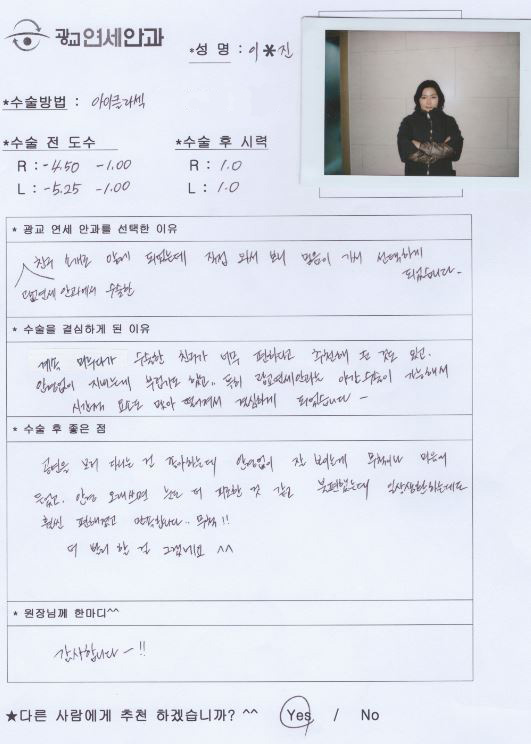 광교 연세안과
*성 명 : 이*진
*수술방법 : 아이클라섹
*수술 전 도수
*수술 후 시력
R : -4.50 -1.00
R : 1.0
L : -5.25 -1.00
L : 1.0
* 광교 연세 안과를 선택한 이유
친구 소개로 알게 되었는데 직접 와서 보니 믿음이 가서 선택하게
되었습니다.
광교연세안과에서 수술한
* 수술을 결심하게 된 이유
계속 미루다가 수술한 친구가 너무 편하다고 추천해 준 것도 있고.
안경없이 지내는게 부럽기도 했고.. 특히 광교연세안과는 야간수술이 가능해서
시간적 요소도 맞아 떨어져서 결심하게 되었습니다 ~
* 수술 후 좋은 점
공연을 보러 다니는 걸 좋아하는데 안경없이 잘 보이는게 무척이나 마음에
들었고. 안경 오래쓰면 눈도 더 피로한 것 같고 불편했는데 일상생활하는데도
훨씬 편해졌고 만족합니다.. 무척!!
더 빨리 할 걸 그랬네요 ^^
* 원장님께 한마디^^
감사합니다~!!
★다른 사람에게 추천 하겠습니까? ^^ Yes / No